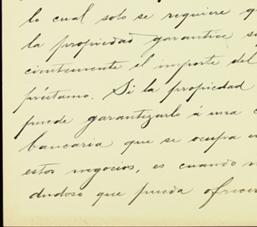 lo cual solo se requiere q
la propiedad garantice su
cientemente el importe del
préstamo. Si la propiedad
puede garantizarlo á una c
bancaria que se ocupa en
estos negocios, es cuando n
dudoso que pueda ofrecer